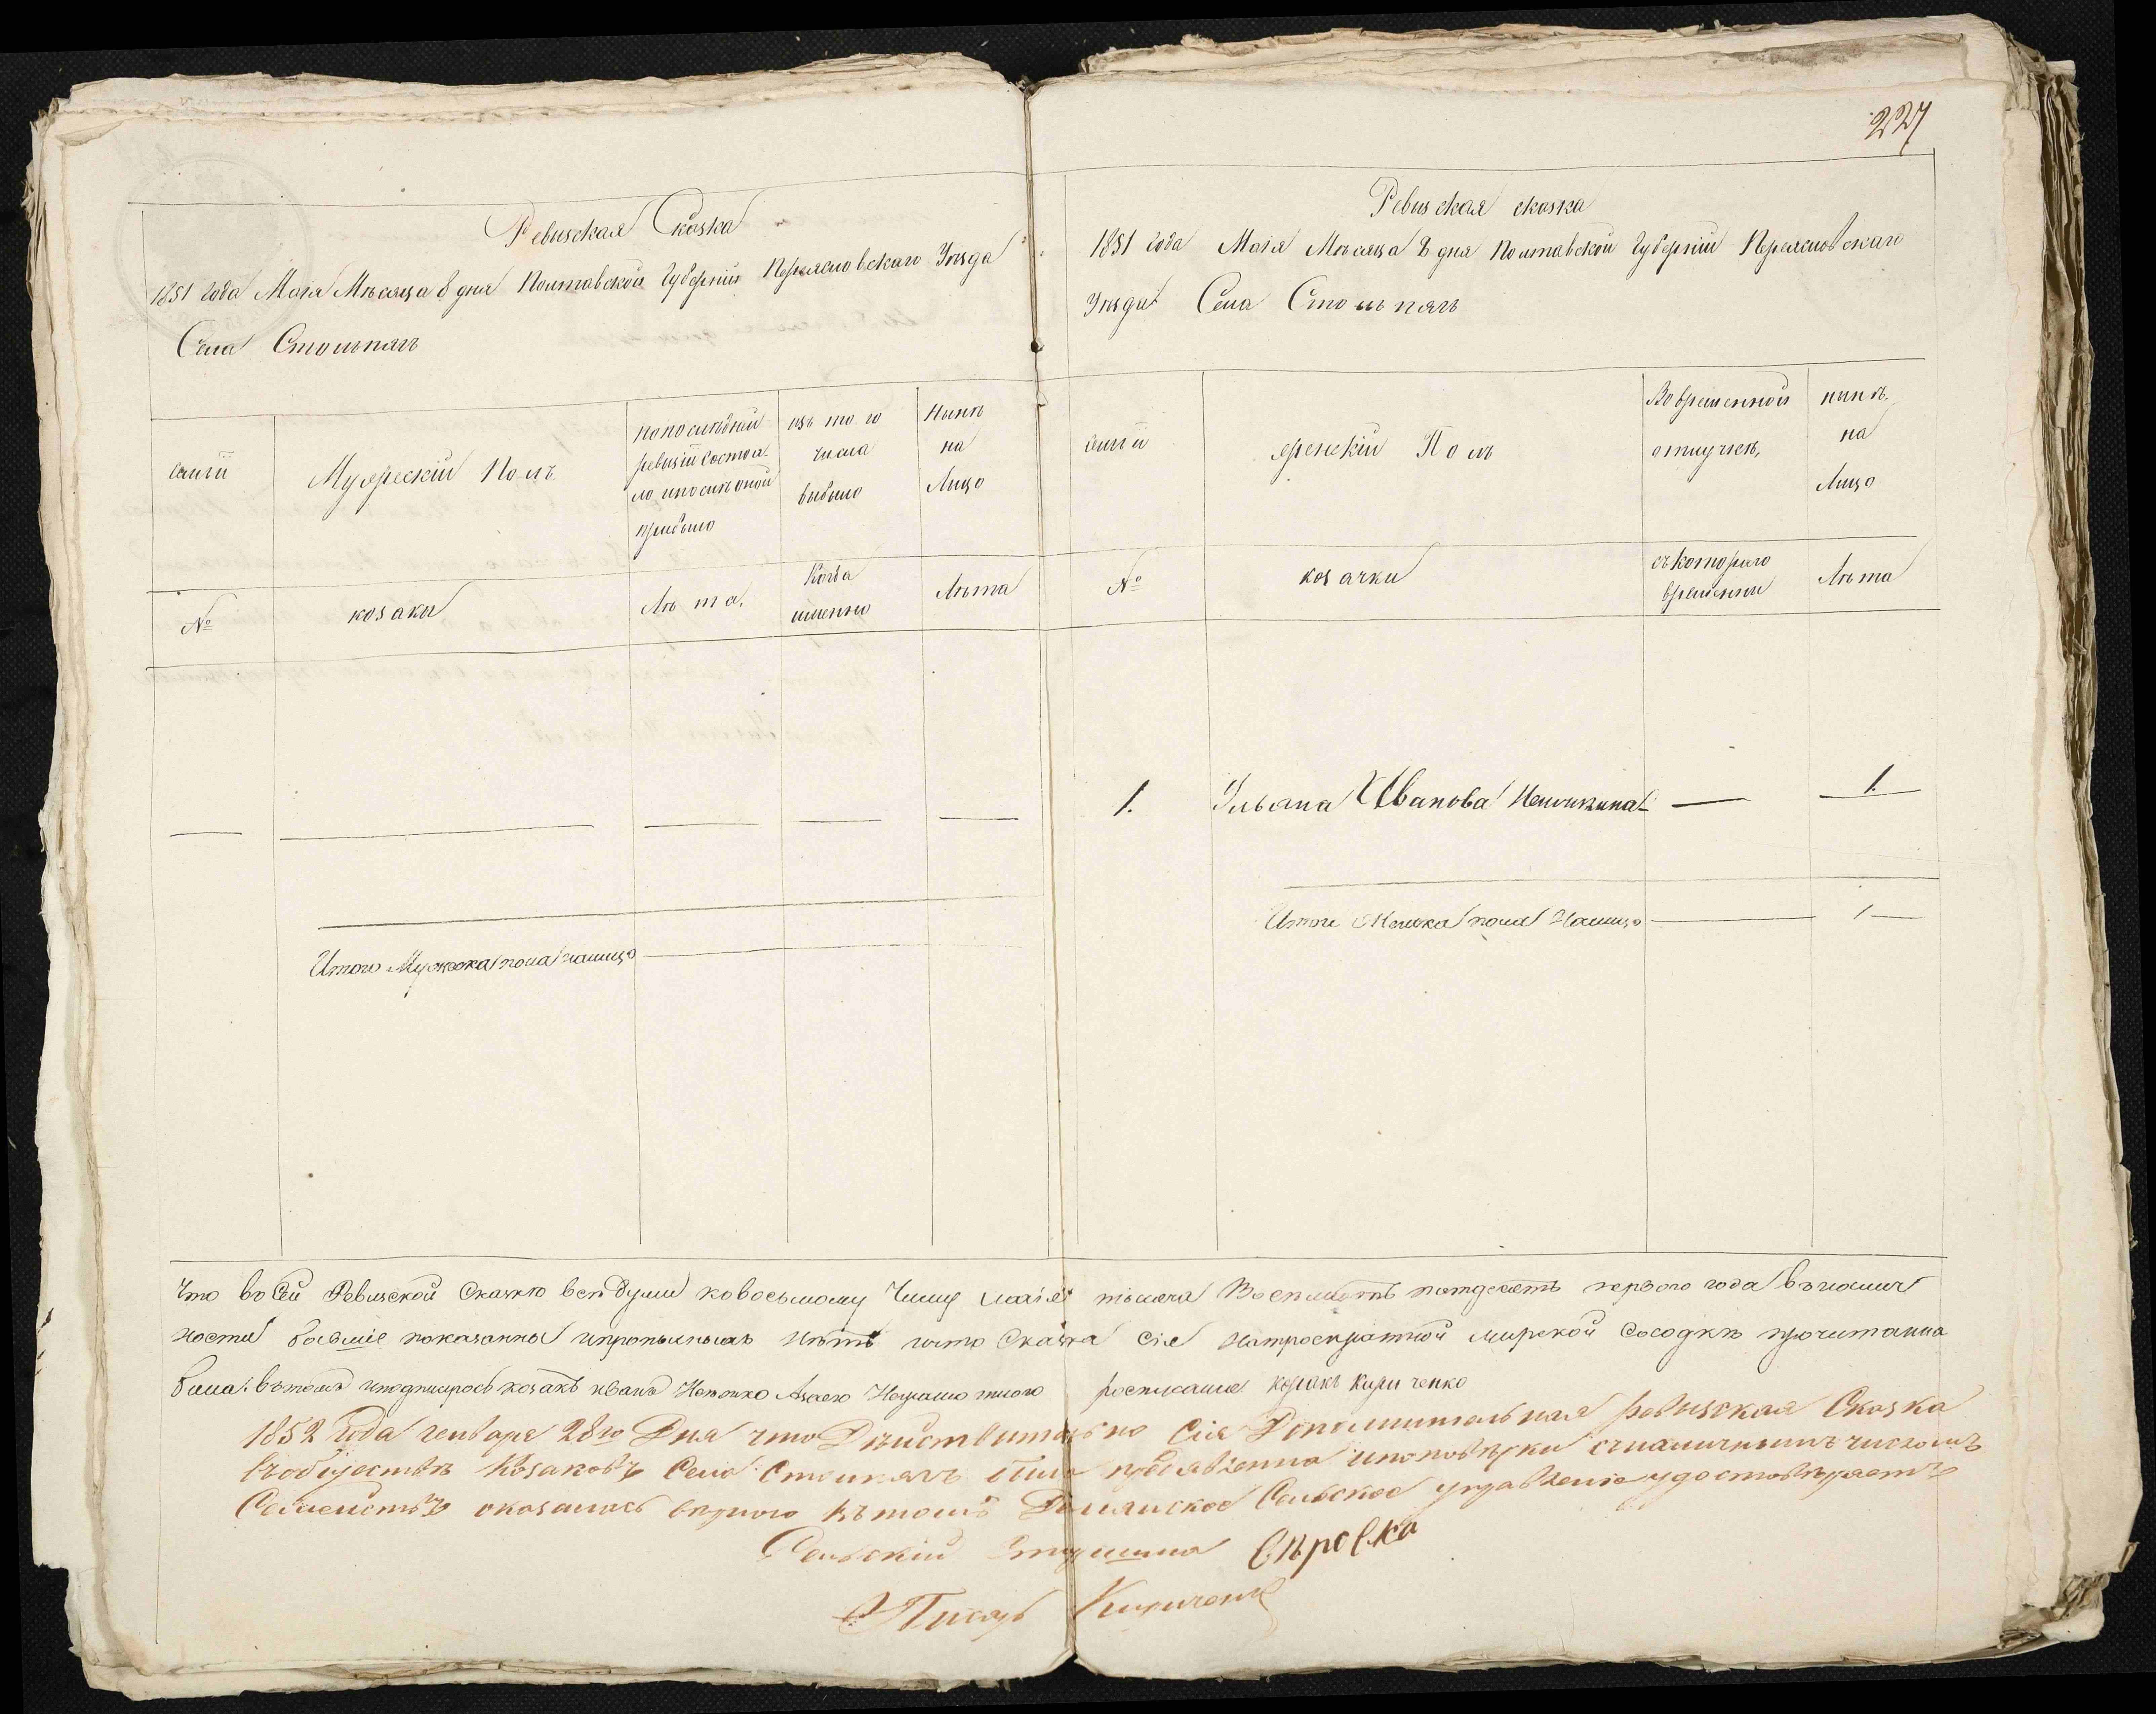 227
Ревизская Сказка
1851 года Маія Мѣсяца 8 дня Полтавской Губерніи Переяславского Уѣзда
Села Столпягъ
Семьи
Мужескій Полъ
попоследней
ревизіи состоя-
ло ипослѣ оной
прибыло
изъ того
числа
выбыло
Нынѣ
на
Лицо
№
козаки
Лѣта.
Когда
именно
Лѣта
Итого Мужска пола налицо
Ревизская сказка
1851 года Маія Мѣсяца 8 дня Полтавской Губерніи Переяславскаго
Уѣзда Села Столпягъ
Семьи
женскій Полъ
Во временной
отлучкѣ,
нынѣ.
на
Лицо
№
козачки
съ котораго
времени
Лѣта
1. Ульяна Иванова 1.
Итого Женска пола Налицо 1
Что во Сей Ревизской Сказкѣ всѣ души ковосьмому Числу маія тысяча Восемьсотъ пятдесятъ первого года вналич
ности бывшіе показанны ипропыныхъ нѣтъ ичто Сказка Сія натроекратной мирской Сходкѣ прочитанна
была. въ томъ иподписуюсь козакъ Иванъ а занего Неграмотного росписался козакъ Кириченко
1852 Года генваря 28го Дня что Дѣйствительно Сія Дополнительная ревизская Сказка
въобществѣ Козаковъ Села Столпягъ была предъявленна ипоповѣрки съналичнымъ числомъ
Семействъ оказалась вѣрною въ томъ Сельское управленіе удостовѣряетъ
Сельскій Старшина Сѣровка
Писарь Кириченко